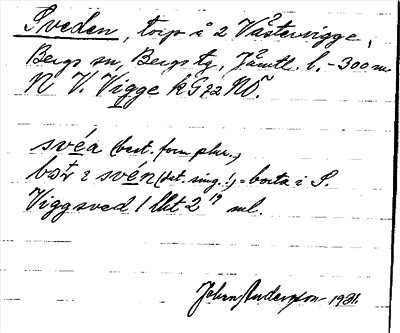 Sveden, torp i 2 Västervigge,
Bergs sn, Bergs tg, Jämtl. l. - 300 m
N V. Vigge kG22 NÖ.
svéa (best. form plur.,
i svén (dat. sing.!) = borta i S.
Viggsved 1 1/2
John Anderson 1931.